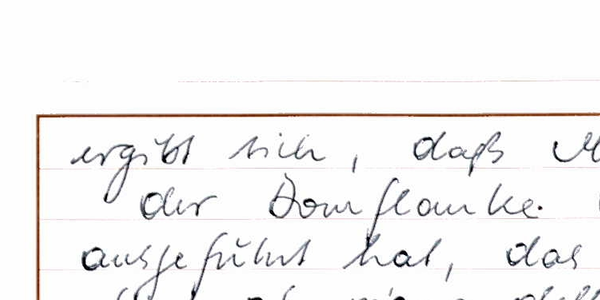 ergibt sich, daß
der Domflanke.
ausgeführt hat, das